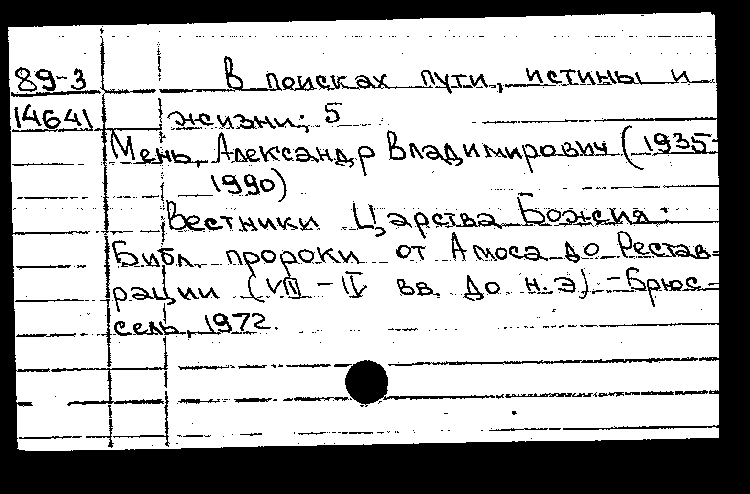 89-3 В поисках пути, истины и
14641 жизни; 5
Мень, Александр Владимирович (1935-
1990)
Вестники Царства Божия:
Библ. пророки от Амоса до Рестав-
рации (VII - IV вв. до н.э). - Брюс-
сель, 1972.